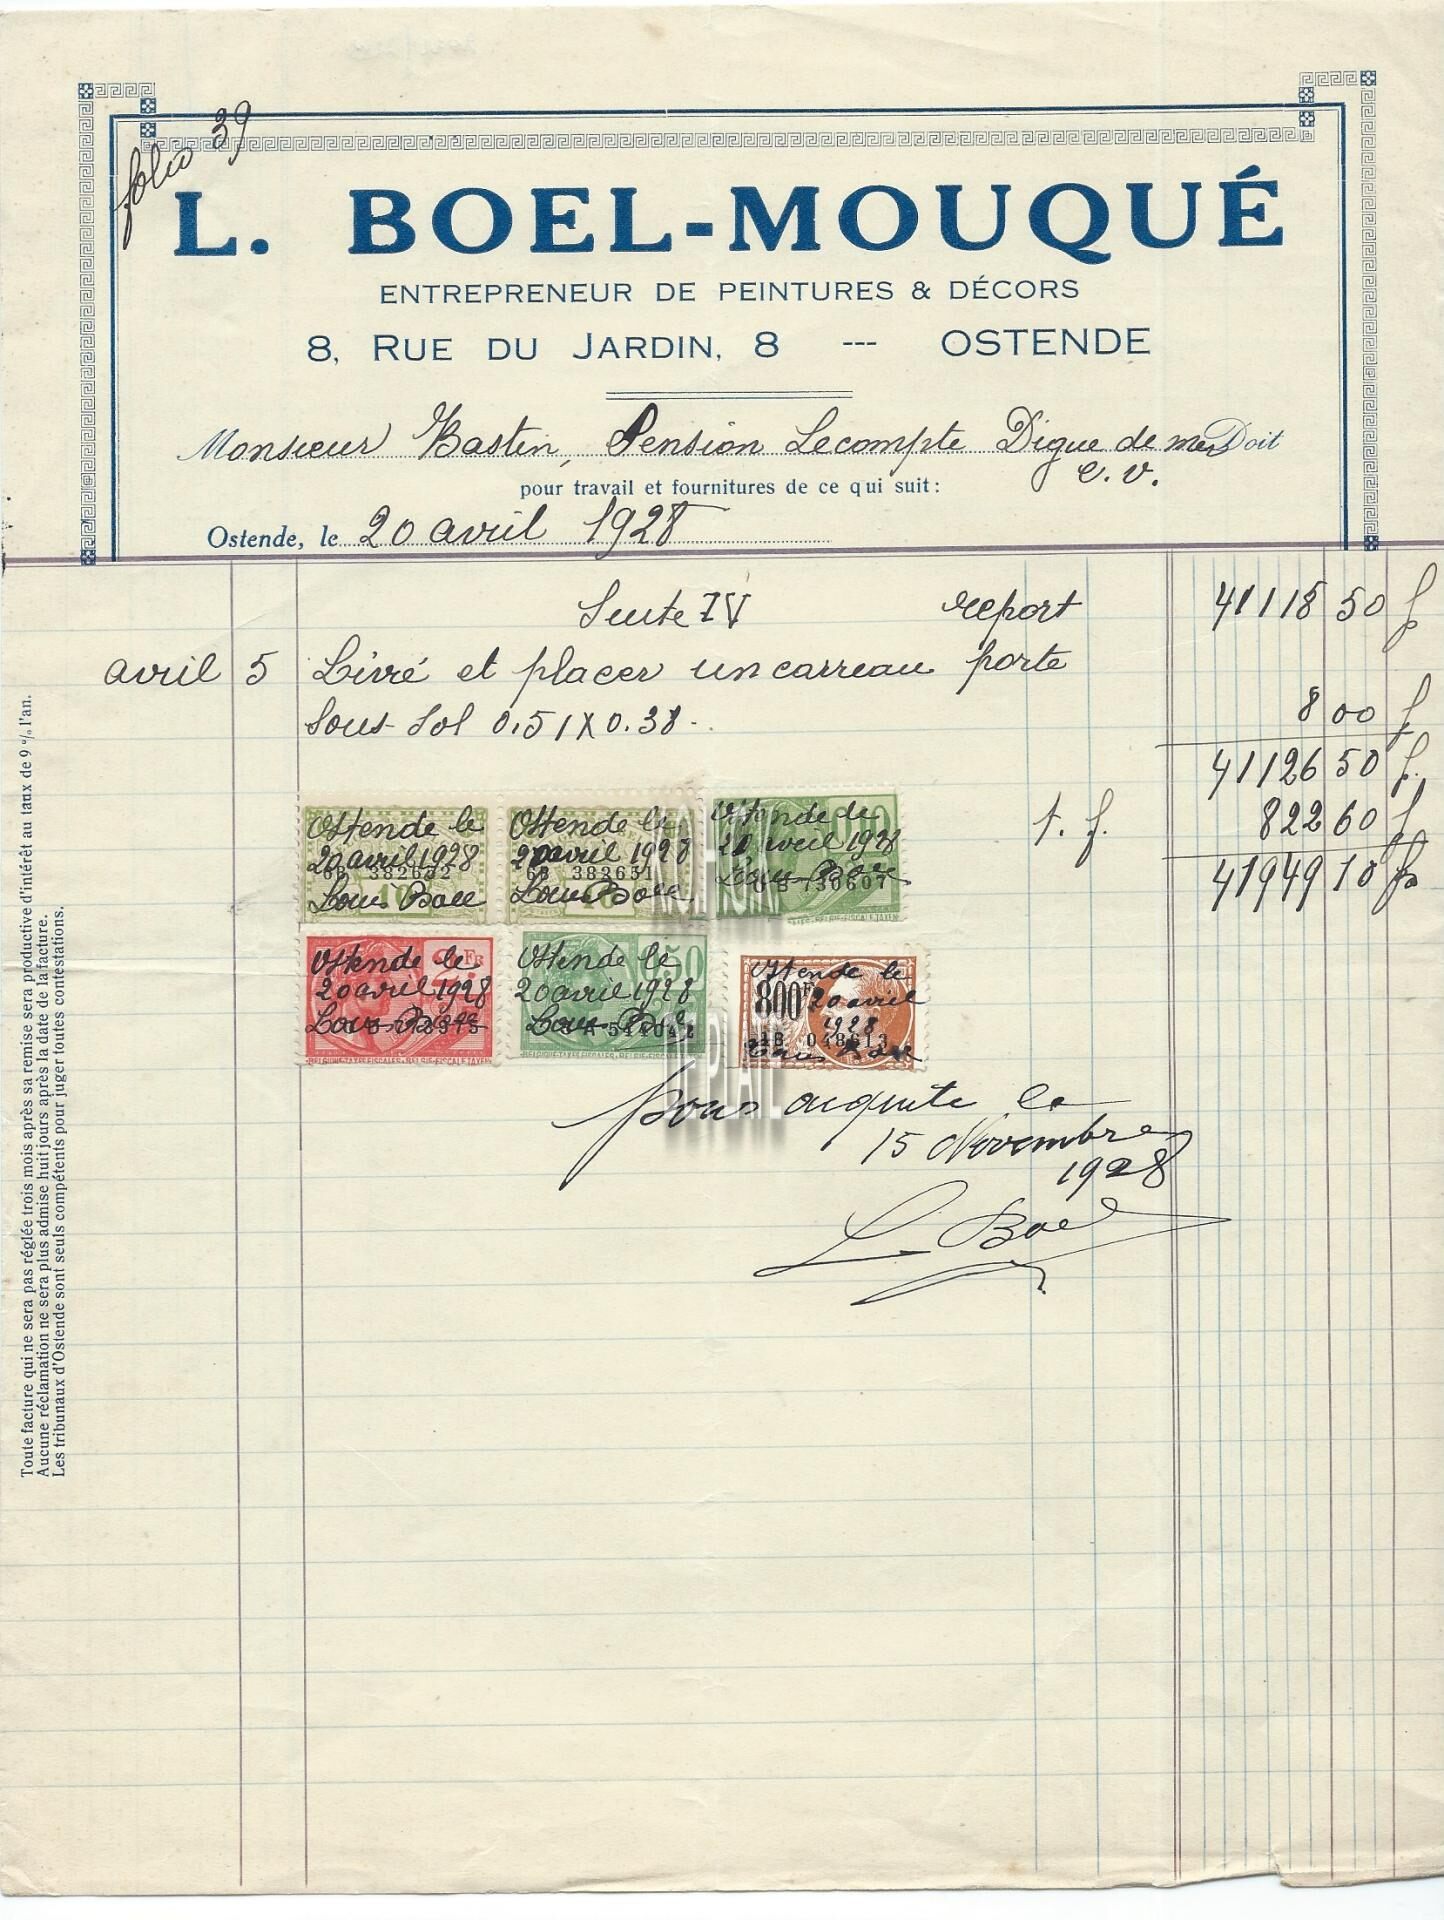 folio 39
L. BOEL-MOUQUÉ
ENTREPRENEUR DE PEINTURES & DÉCORS
8, RUE DU JARDIN, 8 --- OSTENDE
Monsieur Bastin, Pension Lecompte Digue de mer Doit
E. V.
pour travail et fournitures de ce qui suit :
Ostende, le 20 avril 1928
Suite IV report 41118 50 f
avril 5 Livré et placer un carreau porte
sous-sol 0.51 X 0.38 - 8 00 f
41126 50 f.
t. f. 822 60 f
41949 10 fs
Ostende le
20 avril 1928
6B 382652
Louis Boel
Ostende le
20 avril 1928
6B 382651
Louis Boel
Ostende le
20 avril 1928
730607
Louis Boel
2 FR
Ostende le
20 avril 1928
Louis Boel
BELGIQUE-TAXES FISCALES - BELGIE-FISCALE TAXEN
50
Ostende le
20 avril 1928
Louis Boel
BELGIQUE-TAXES FISCALES - BELGIE-FISCALE TAXEN
Ostende le
800 Fr 20 avril
1928
048613
Louis Boel
Pour acquit le
15 Novembre
1928
L. Boel
Toute facture qui ne sera pas réglée trois mois après sa remise sera productive d'intérêt au taux de 9 % l'an.
Aucune réclamation ne sera plus admise huit jours après la date de la facture.
Les tribunaux d'Ostende sont seuls compétents pour juger toutes contestations.